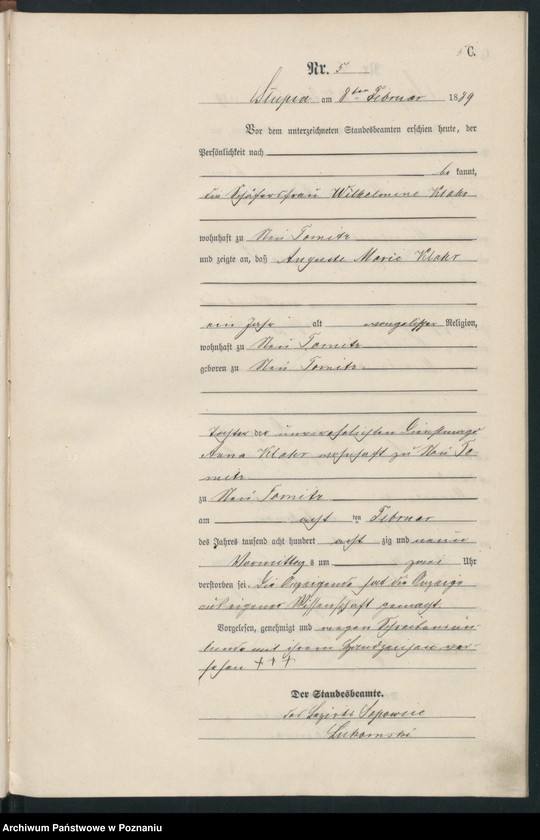 5 C.
Nr. 5
Stupia am 8ten Februar 1889
Vor dem unterzeichneten Standesbeamten erschien heute, der
Persönlichkeit nach
be kannt,
die Schäfersfrau Wilhelmine Klahr
wohnhaft zu Neu Tomitz
und zeigte an, daß Auguste Marie Klahr
ein Jahr alt evangelischer Religion,
wohnhaft zu Neu Tomitz
geboren zu Neu Tomitz
Tochter der unverehelichten Dienstmagd
Anna Klahr wohnhaft zu Neu To-
mitz
zu Neu Tomitz
am acht ten Februar
des Jahres tausend acht hundert acht zig und neun
Vormittag s um zwei Uhr
verstorben sei. Die Anzeigende hat die Anzeige
aus eigener Wissenschaft gemacht.
Vorgelesen, genehmigt und wegen Schreibensun-
kunde mit ihrem Handzeichen ver-
sehen + + +
Der Standesbeamte.
des Bezirks Sapowice
Archiwum Państwowe w Poznaniu